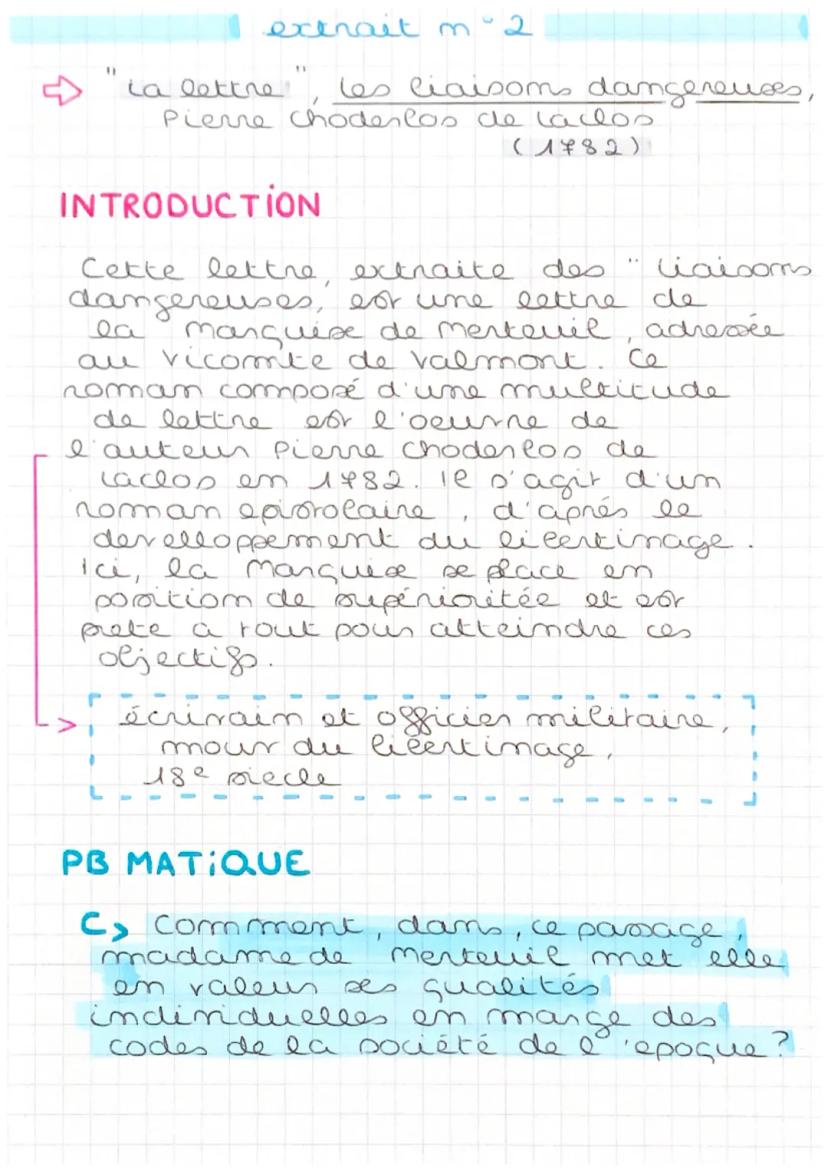 extrait n°2
⇨ "La lettre", Les liaisons dangereuses,
Pierre Choderlos de Laclos
(1782)
INTRODUCTION
Cette lettre, extraite des " Liaisons
dangereuses, est une lettre de
la marquise de Merteuil, adressée
au vicomte de Valmont. Ce
roman composé d'une multitude
de lettre est l'oeuvre de
l'auteur Pierre Choderlos de
Laclos en 1782. Il s'agit d'un
roman epistolaire, d'après le
develloppement du libertinage.
Ici, la Marquise se place en
position de supérioritée et est
prete a tout pour atteindre ces
objectifs.
-> écrivain et officier militaire,
mour du libertinage,
18e siecle
PB MATIQUE
↳ Comment, dans, ce passage,
madame de Merteuil met elle
en valeur ses qualités
individuelles en marge des
codes de la société de l'epoque?